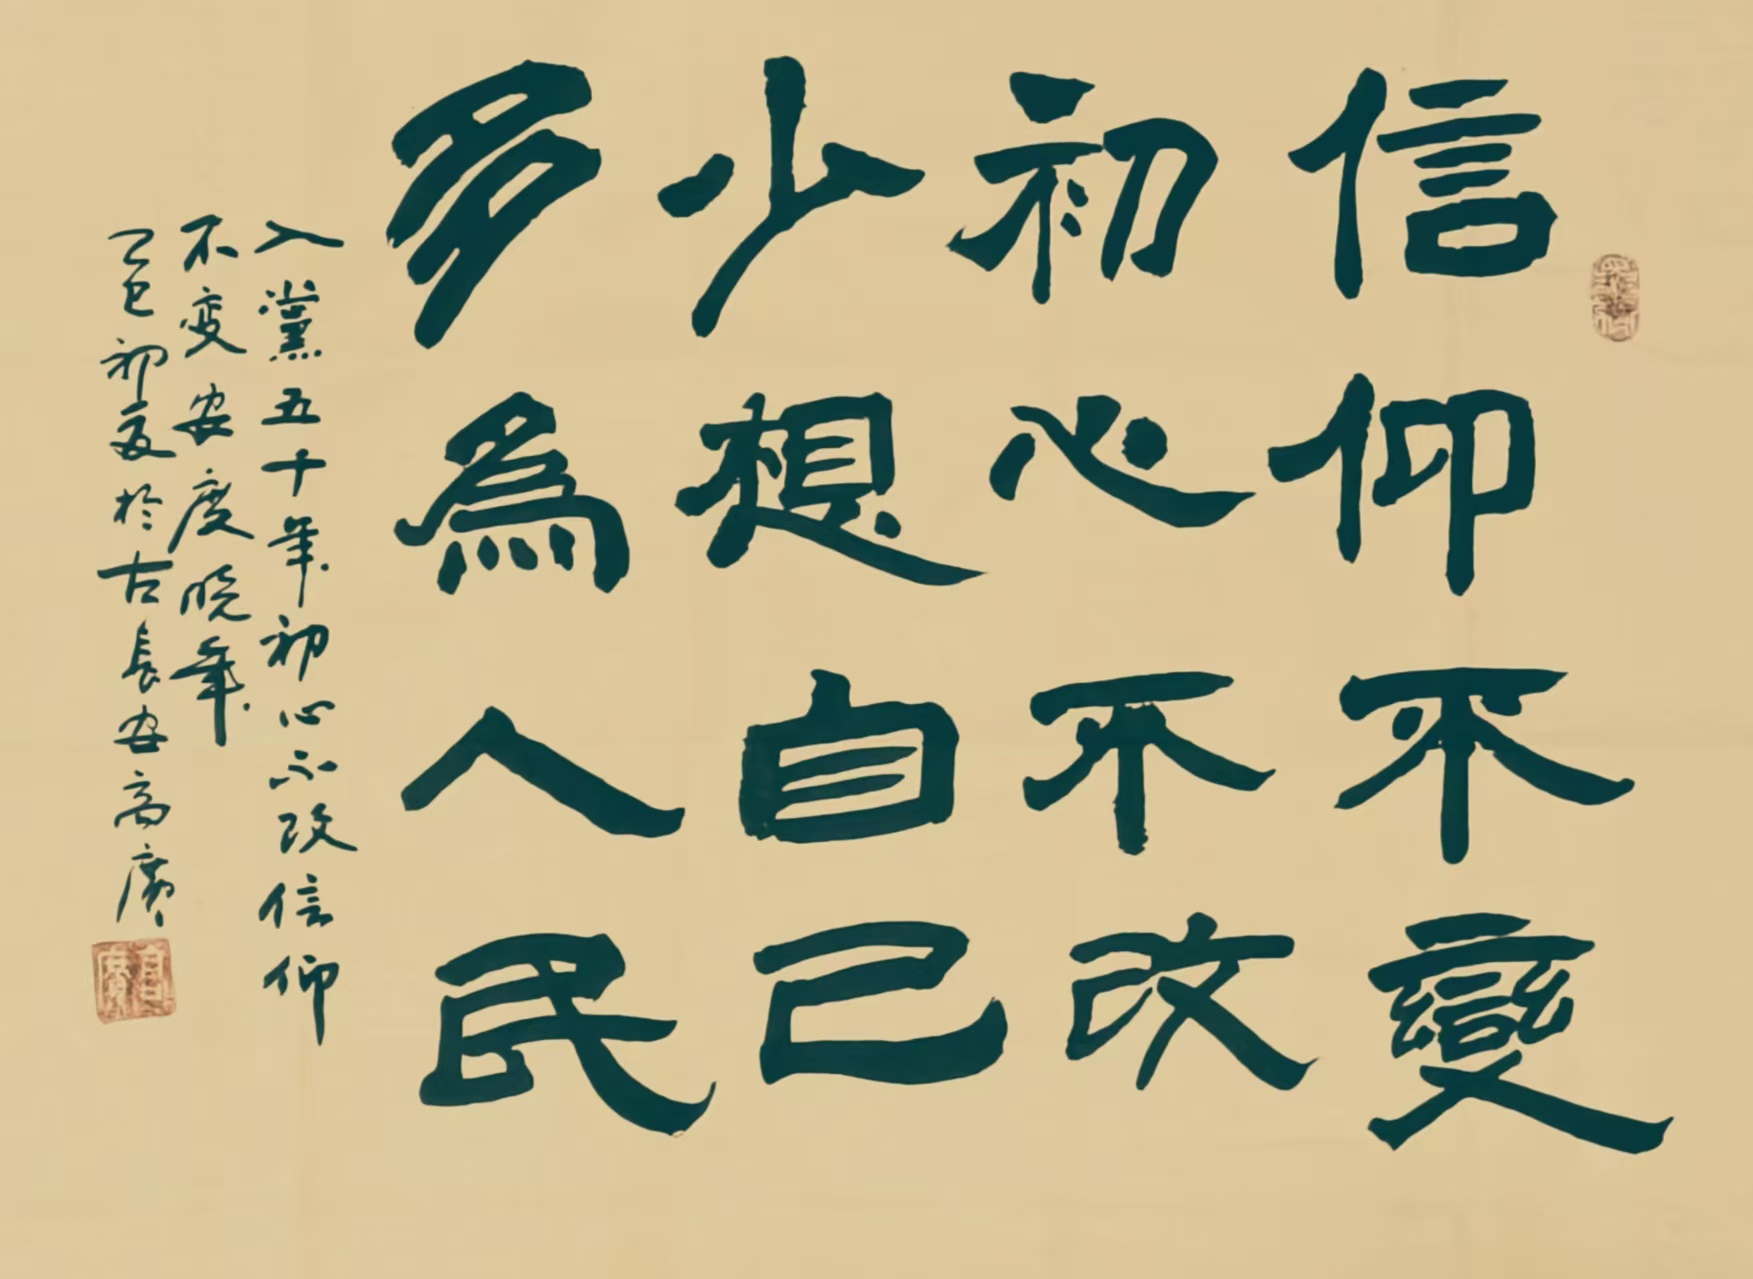 信仰不變
初心不改
少想自己
多為人民
入黨五十年初心不改信仰
不变安度晚年
乙巳初夏於古長安高廣